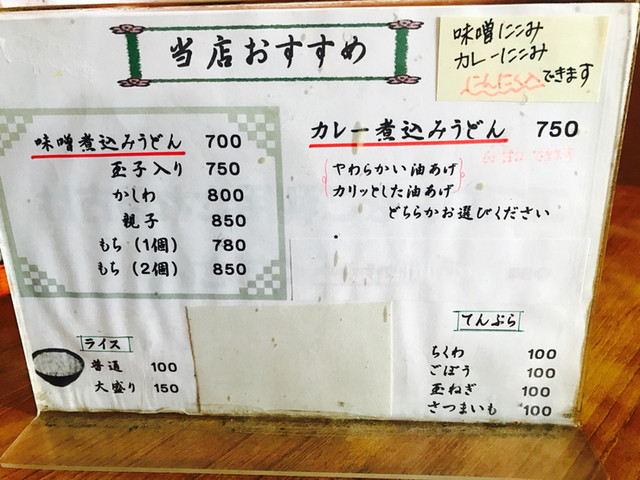 当店おすすめ
味噌にこみ
カレーにこみ
にんにく入できます
味噌煮込みうどん 700
玉子入り 750
かしわ 800
親子 850
もち(1個) 780
もち(2個) 850
カレー煮込みうどん 750
やわらかい油あげ
カリッとした油あげ
どちらかお選びください
ライス
普通 100
大盛り 150
てんぷら
ちくわ 100
ごぼう 100
玉ねぎ 100
さつまいも 100